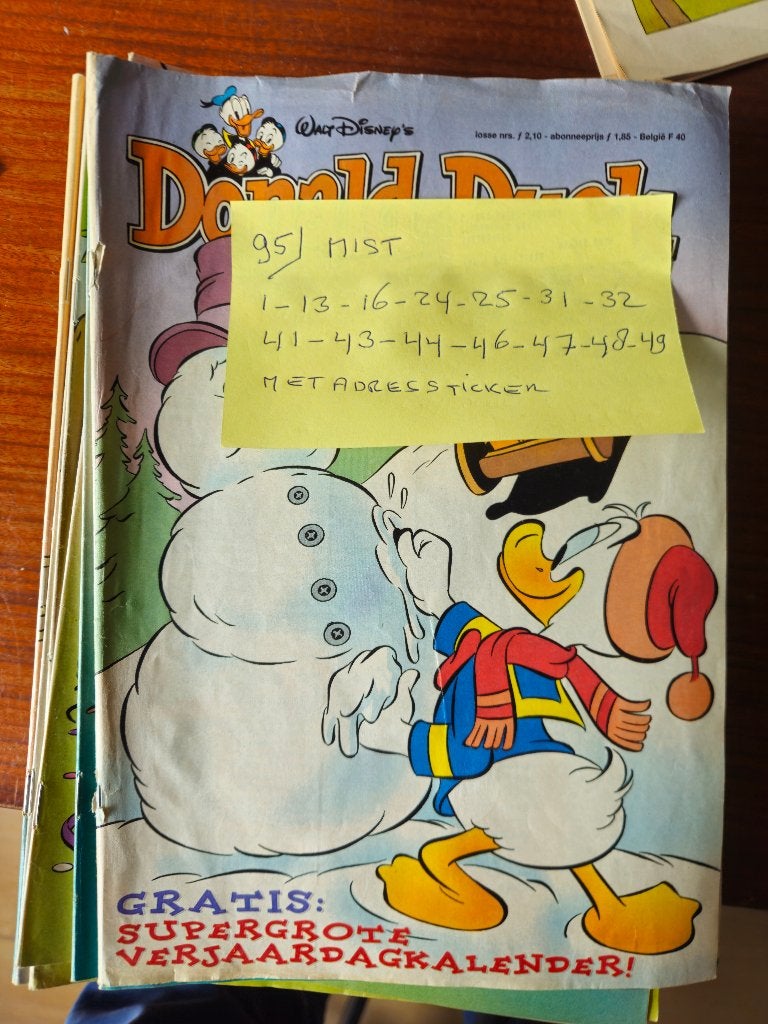 WALT DISNEY'S
losse nrs. ƒ 2,10 - abonneeprijs ƒ 1,85 - België F 40
Donald Duck
95) MIST
1 - 13 - 16 - 24 - 25 - 31 - 32
41 - 43 - 44 - 46 - 47 - 48 - 49
MET ADRESSTICKER
GRATIS:
SUPERGROTE
VERJAARDAGKALENDER!